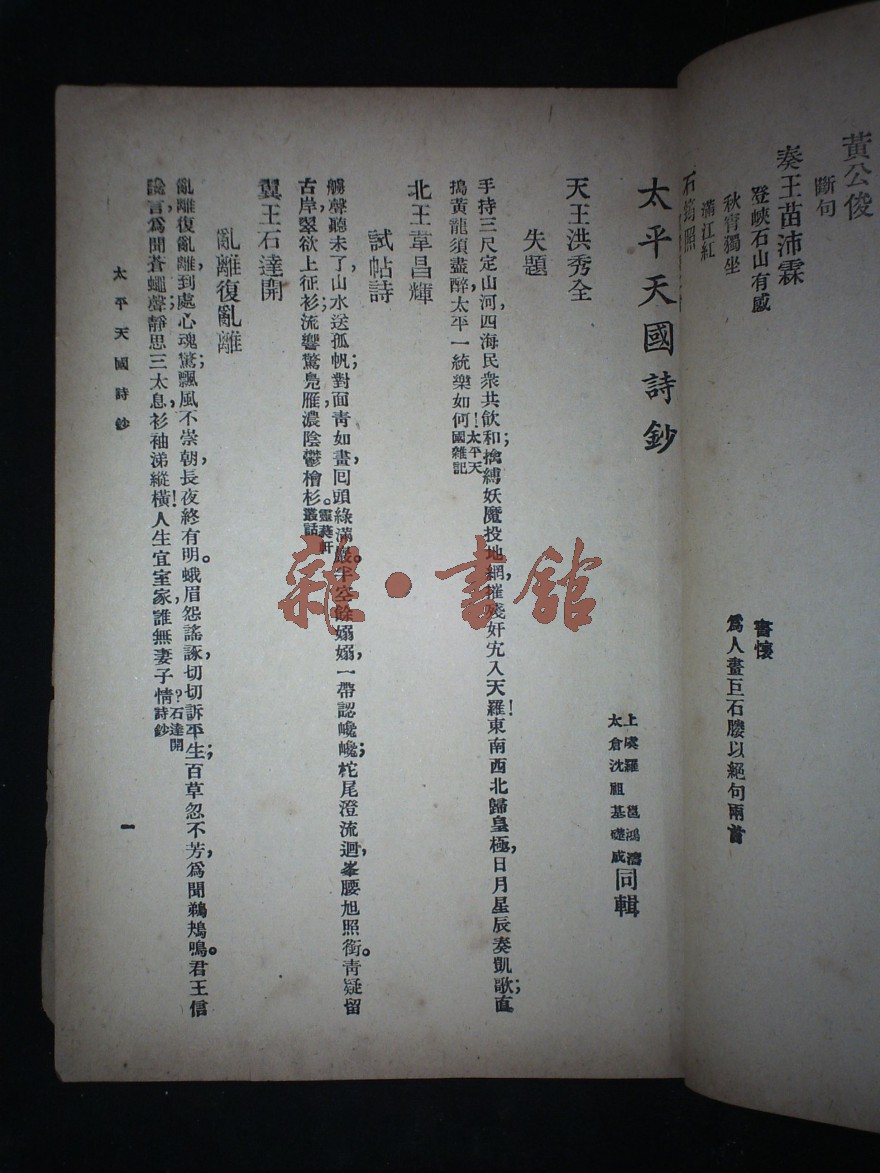 黃公俊
斷句
奏王苗沛霖
登峽石山有感
秋宵獨坐
滿江紅
書懷
爲人畫巨石媵以絕句兩首
太平天國詩鈔
上虞羅邕鴻濤
太倉沈祖基礎成
同輯
天王洪秀全
失題
手持三尺定山河四海民衆共飲和;擒縛妖魔投地網,摧殘奸宄入天羅!東南西北歸皇極,日月星辰奏凱歌;直
搗黃龍須盡醉,太平一統樂如何!太平天國雜記
北王韋昌輝
試帖詩
艣聲聽未了,山水送孤帆;對面靑如畫,囘頭綠滿巖。半空餘嫋嫋,一帶認巉巉;柁尾澄流迴,峯腰旭照銜。靑疑留
古岸,翠欲上征衫;流響驚鳧雁,濃陰鬱檜杉。靈蕤軒叢話
翼王石達開
亂離復亂離
亂離復亂離,到處心魂驚;飄風不崇朝,長夜終有明。蛾眉怨謠諑,切切訴平生;百草忽不芳,爲聞鵜鴂鳴。君王信
讒言,爲聞蒼蠅聲;靜思三太息,衫袖涕縱橫!人生宜室家,誰無妻子情?石達開詩鈔
太平天國詩鈔
一
雜·書館